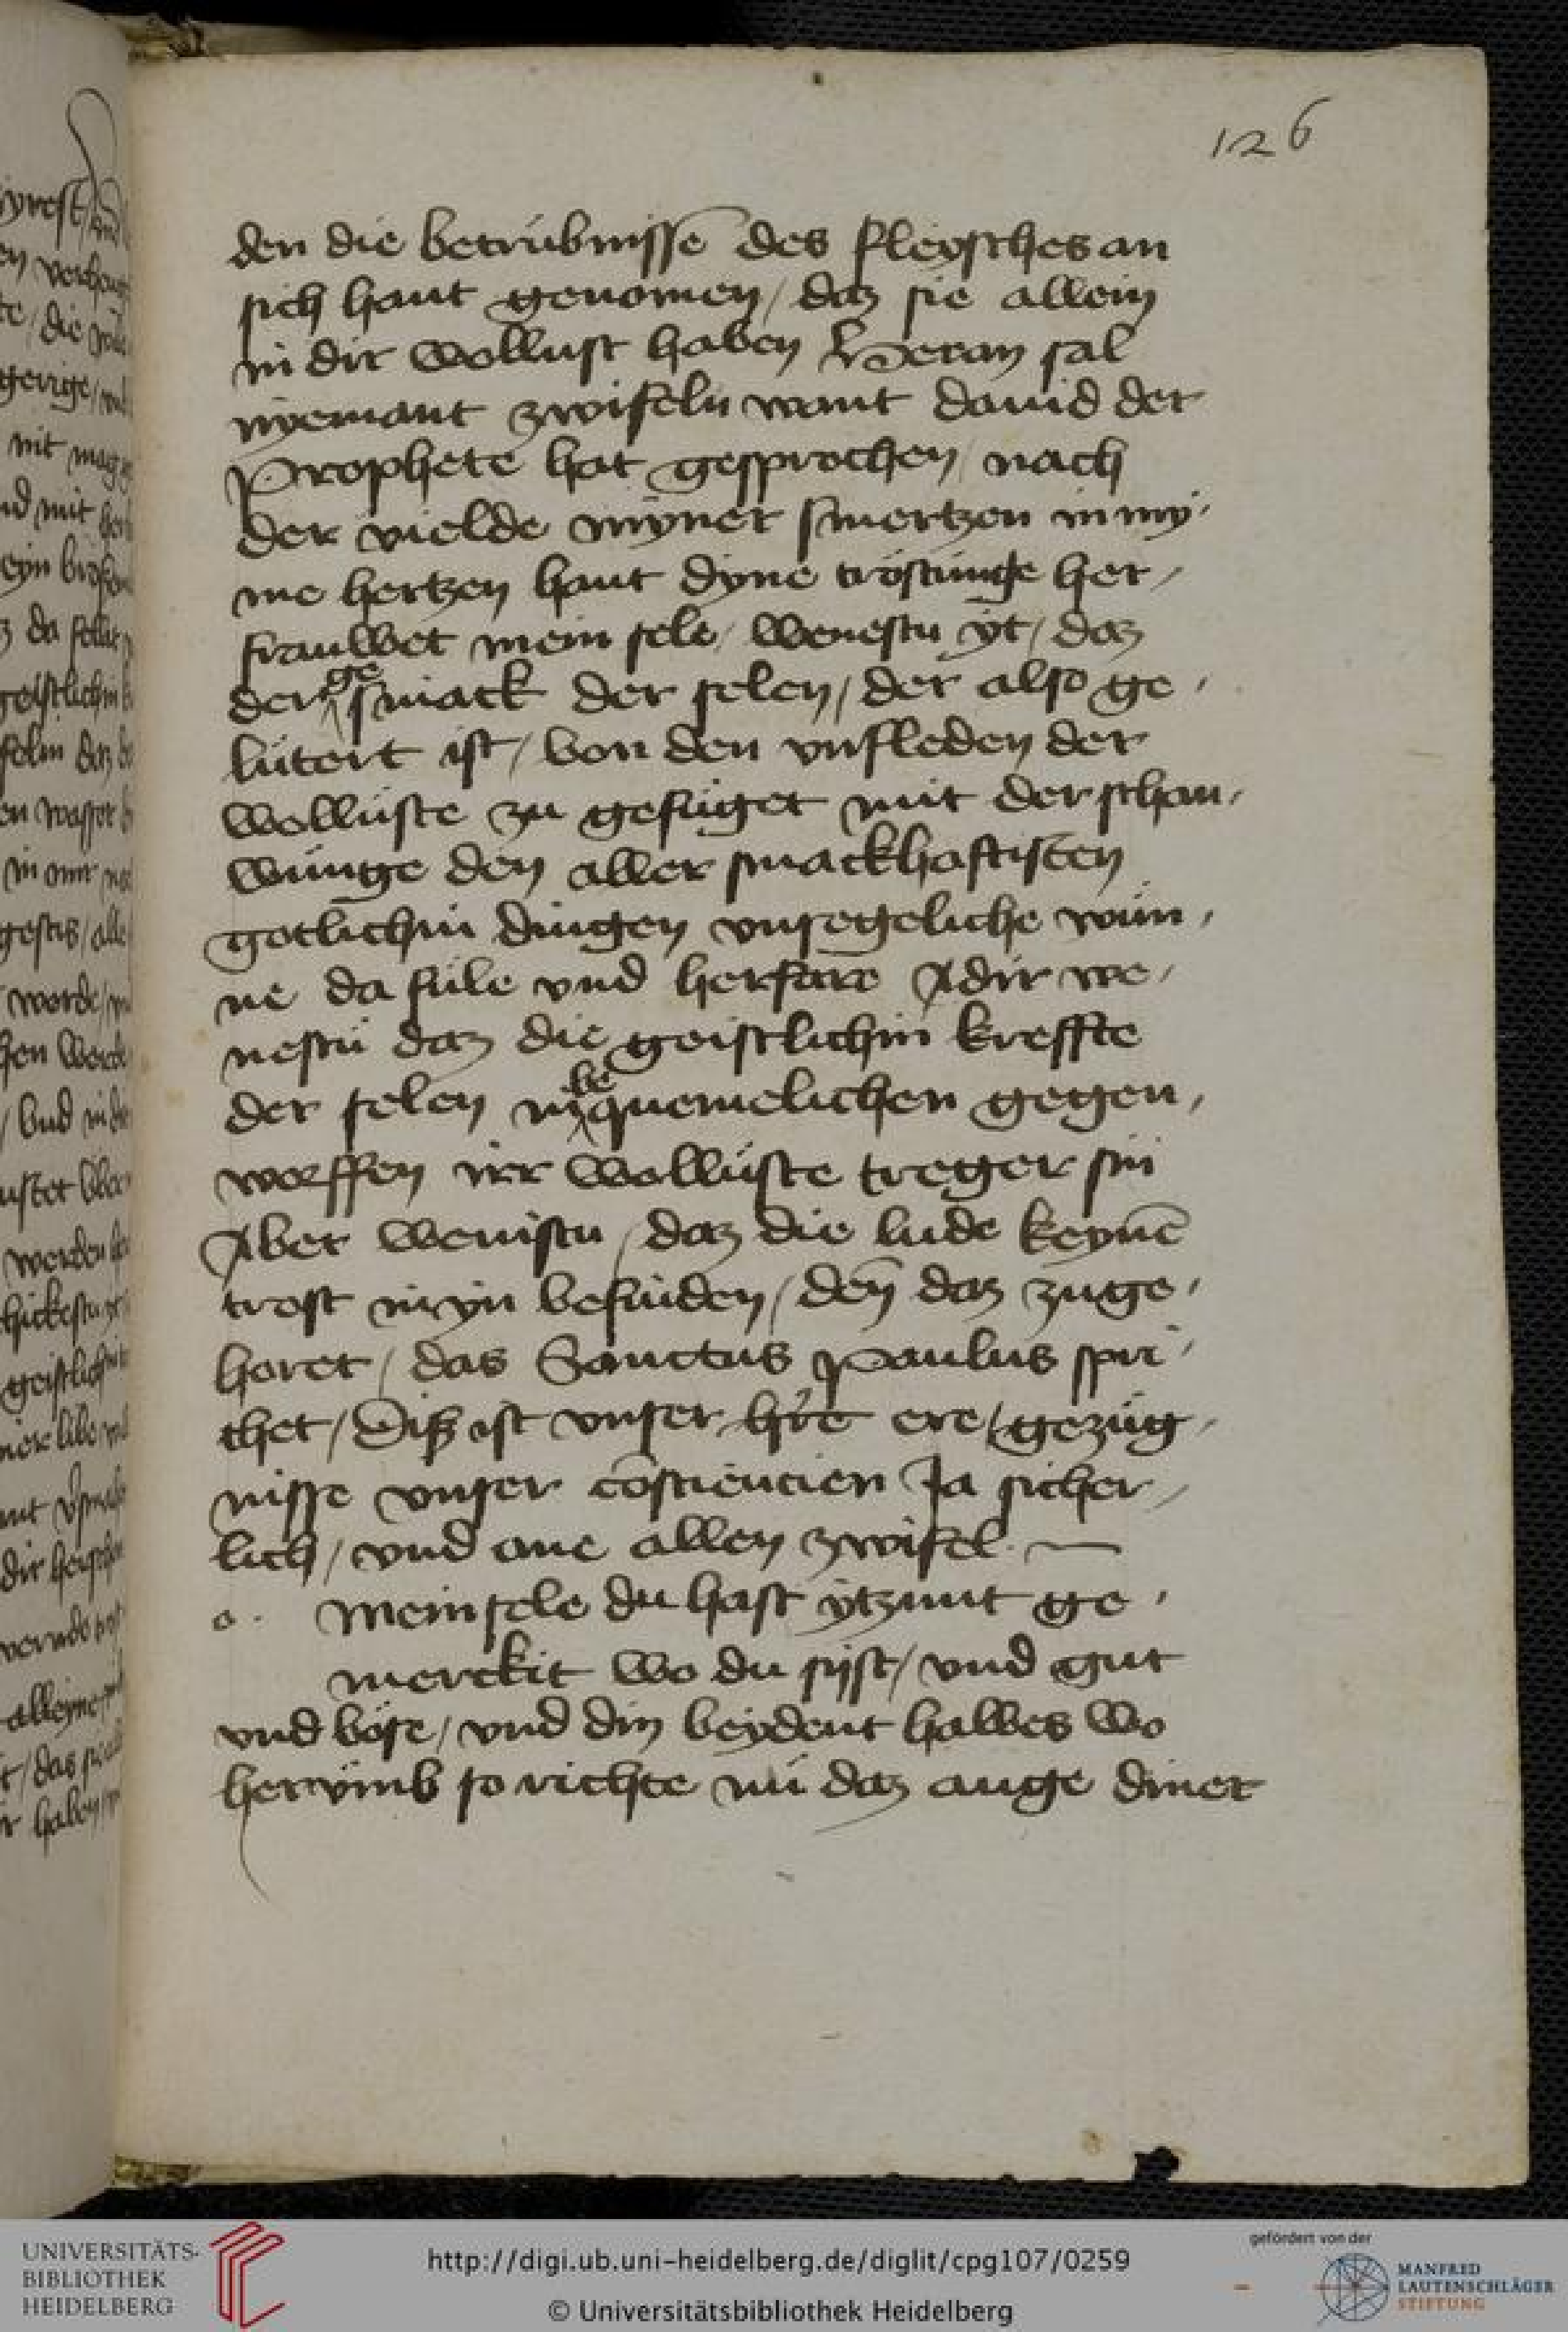 126
den die betrubnissē des fleysches an
sich hant genomen / daz sie allein
in dir wollust haben Heran sal
nyemant zwifeln want dauid der
Prophete hat gesprochen / nach
der vielde myner smertzen in my-
me hertzen hant dyne tröstunge her-
frauwet mein sele / wenestu yt / daz
der gesmack der selen / der also ge-
lutert ist / von den vnfleden der
wolluste zu gefuget mit der schau-
wunge den aller smackhaftisten
gotlichin dingen vnsegeliche wun-
ne da fule vnd herfare Adir we-
nestu daz die geistlichin kreffte
der selen in bequemelichen gegen-
worffen irr wolluste treger sin
Aber wenistu / daz die lude keynē
trost in yn befinden / den daz zuge-
horet / das Sanctus Paulus spri-
chet / Diß ist vnser hr̄e ere / gezug-
nisse vnser cōsciencien Ja sicher-
lich / vnd ane allen zwifel
o. Mein sele du hast ytzunt ge-
merckit wo du syst / vnd gut
vnd böse / vnd din beydent halbes wo
hervmb so richte nu daz auge diner
UNIVERSITÄTS-
BIBLIOTHEK
HEIDELBERG
http://digi.ub.uni-heidelberg.de/diglit/cpg107/0259
© Universitätsbibliothek Heidelberg
gefördert von der
MANFRED
LAUTENSCHLÄGER
STIFTUNG